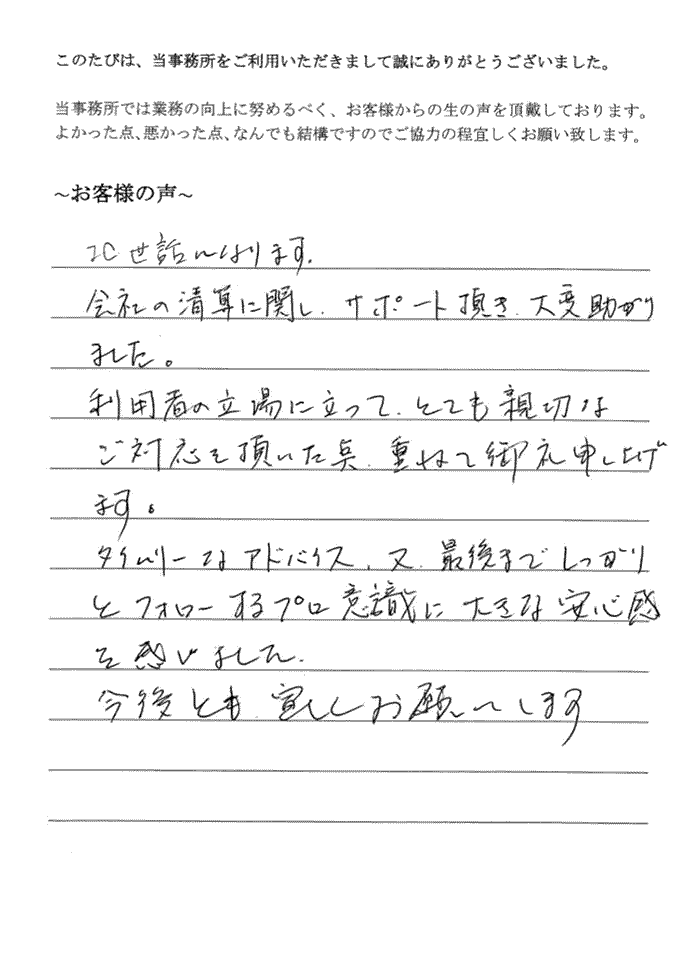 このたびは、当事務所をご利用いただきまして誠にありがとうございました。
当事務所では業務の向上に努めるべく、お客様からの生の声を頂戴しております。
よかった点、悪かった点、なんでも結構ですのでご協力の程宜しくお願い致します。
~お客様の声~
お世話になります。
会社の清算に関し、サポート頂き、大変助かり
ました。
利用者の立場に立って、とても親切な
ご対応を頂いた点、重ねて御礼申し上げ
ます。
タイムリーなアドバイス、又、最後までしっかり
とフォローするプロ意識に大きな安心感
を感じました。
今後とも宜しくお願いします